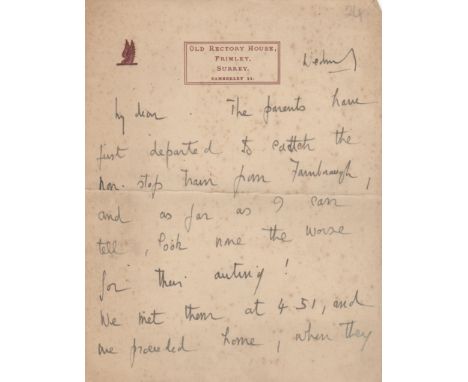 24
OLD RECTORY HOUSE,
FRIMLEY,
SURREY.
CAMBERLEY 22.
Wednesd
My dear The parents have
just departed to cattch the
non. stop train from Farnborough,
and as far as I can
tell, look none the worse
for their outing!
We met them at 4 51, and
we proceeded home, when they